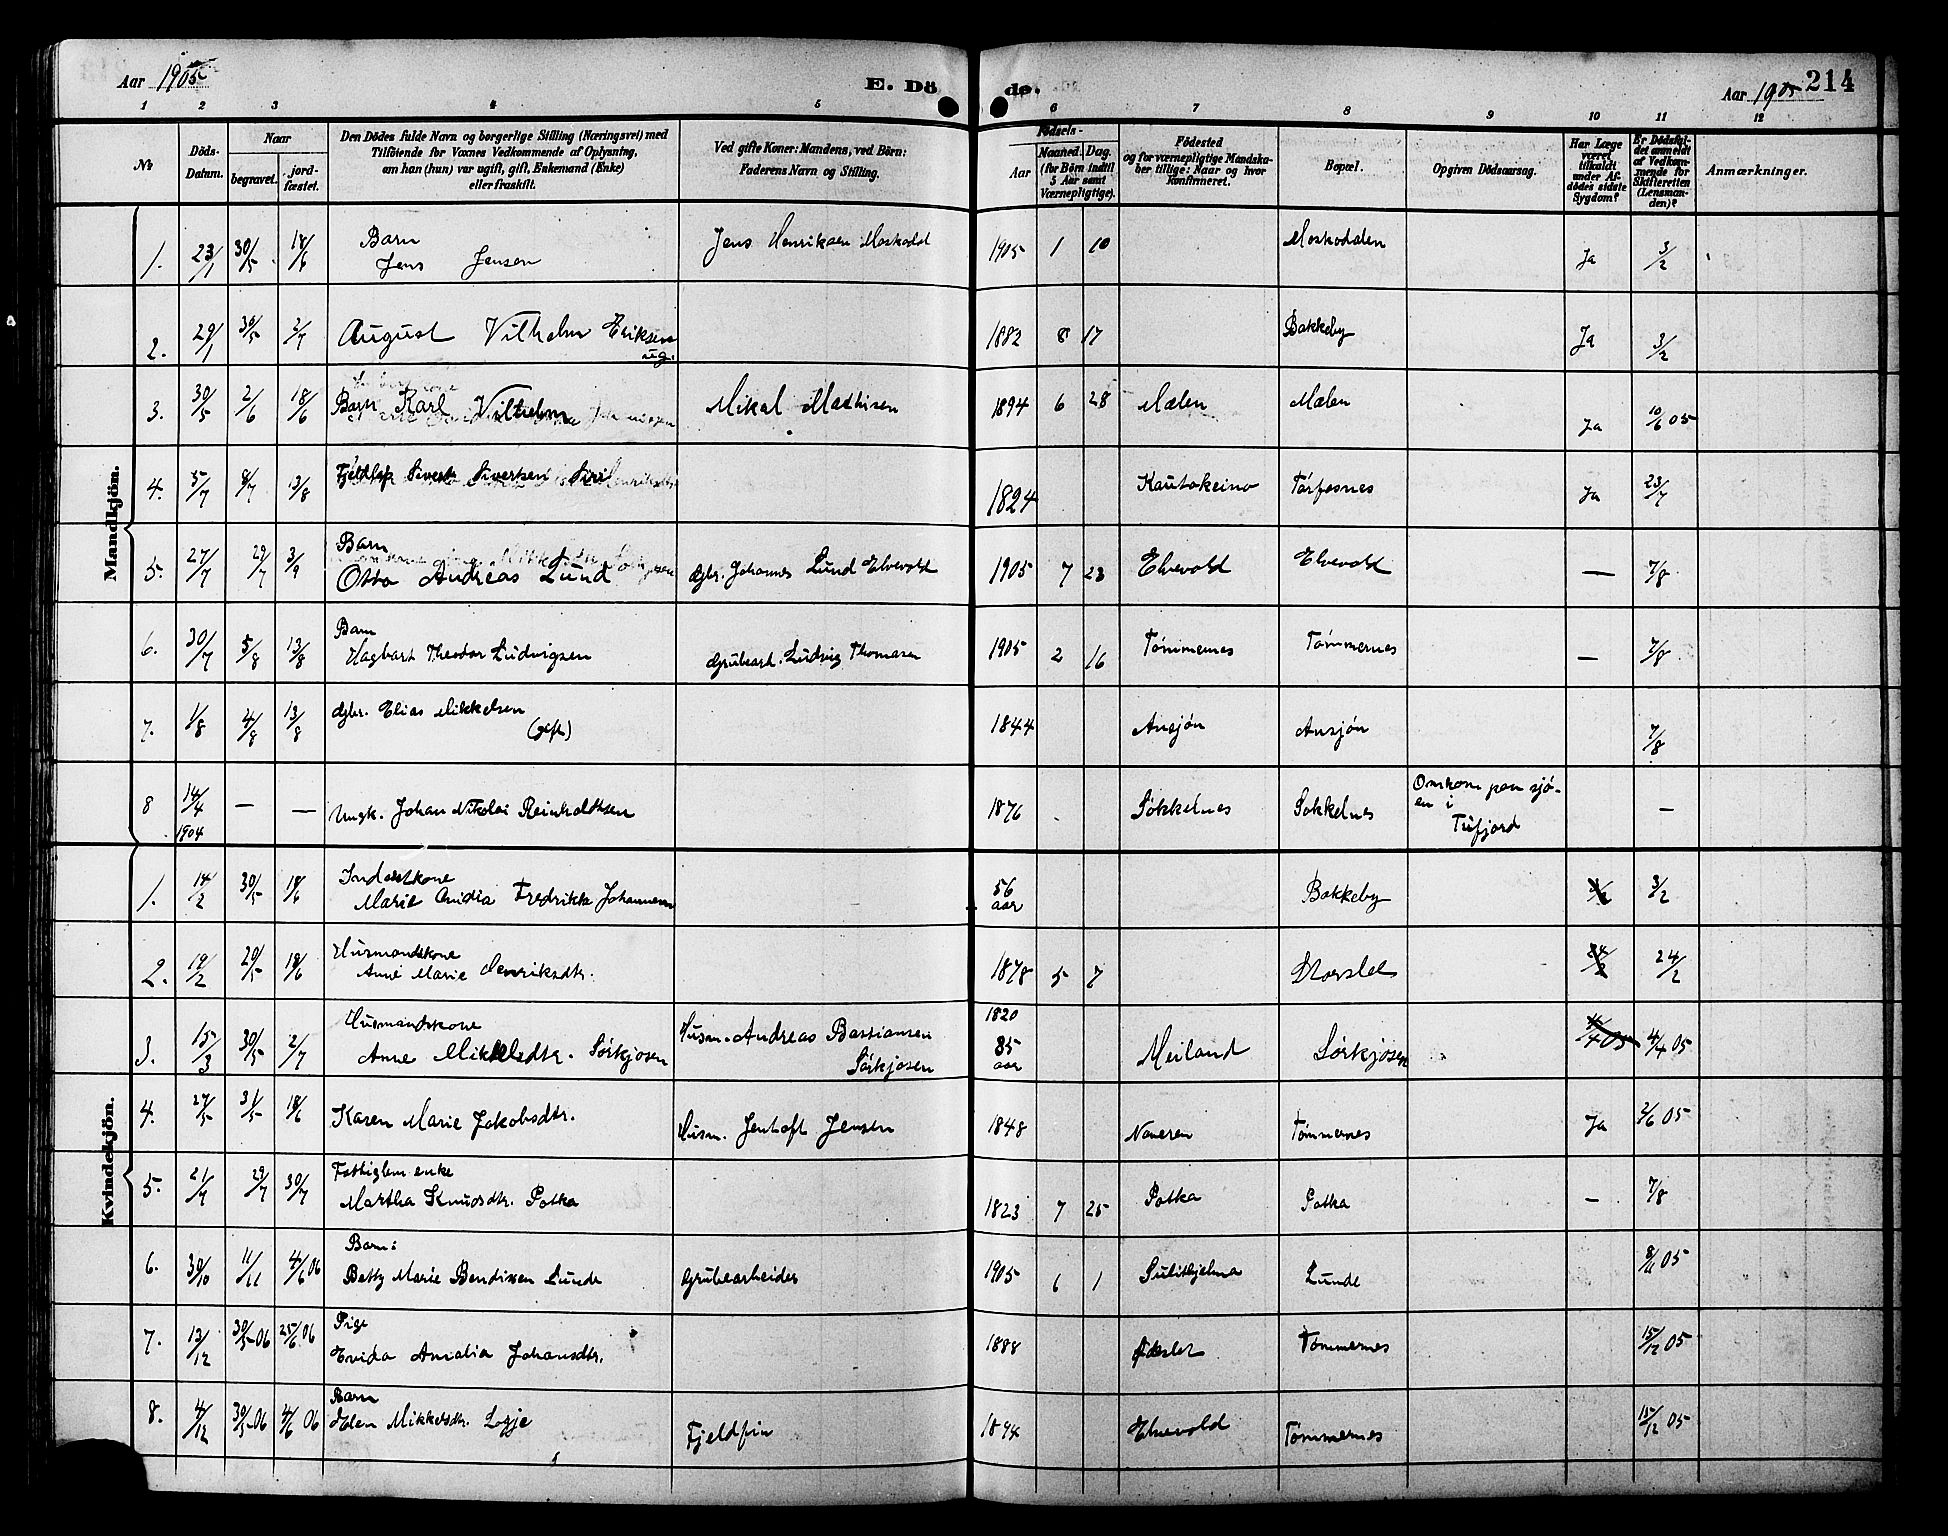 Aar 1905
E. Dö
de.
Aar 1905
214
1 2 3 4 5 6 7 8 9 10 11 12
No
Döds-
Datum.
Naar
begravet.
jord-
fæstet.
Den Dödes fulde Navn og borgerlige Stilling (Næringsvei) med
Tilföiende for Voxnes Vedkommende af Oplysning,
om han (hun) var ugift, gift, Enkemand (Enke)
eller fraskilt.
Ved gifte Koner: Mandens, ved Börn:
Faderens Navn og Stilling.
Födsels-
Aar
Maaned.
Dag.
(for Börn indtil
5 Aar samt
Værnepligtige).
Födested
og for værnepligtige Mandska-
ber tillige: Naar og hvor
konfirmeret.
Bopæl.
Opgiven Dödsaarsag.
Har Læge
været
tilkaldt
under Af-
dödes sidste
Sygdom?
Er Dödsfal-
det anmeldt
af Vedkom-
mende for
Skifteretten
(Lensman-
den)?
Anmærkninger.
Mandkjön.
1. 23/1 30/5 18/6 Barn
Jens Jensen Jens Henriksen Moskodal 1905 1 10 Moskodalen Ja 3/2
2. 29/1 30/5 2/7 August Vilhelm Eriksen
ug. 1882 8 17 Bakkeby Ja 3/2
3. 30/5 2/6 18/6 Barn Karl Vilhelm Mikal Mathisen 1894 6 28 Mælen Mælen Ja 10/6 05
4. 5/7 8/7 13/8 Sivert Sivertsen Siri 1824 Kautokeino Torfosnes Ja 23/7
5. 27/7 29/7 3/9 Barn
Otto Andreas Lund gbr. Johannes Lund Elvevold 1905 7 23 Elvevold Elvevold — 7/8
6. 30/7 5/8 13/8 Barn
Hagbart Theodor Ludvigsen Grubearb. Ludvig Thomasen 1905 2 16 Tømmernes Tømmernes — 7/8
7. 1/8 4/8 13/8 gbr. Elias Mikkelsen
(gift) 1844 Ansjøn Ansjøn 7/8
8 14/4 1904 — — Ungk. Johan Nikolai Reinholdtsen 1876 Sokkelnes Sokkelnes Omkom paa sjø-
en i
Tufjord —
Kvindekjön.
1. 14/2 30/5 18/6 Inderstkone
Marie Fredrikke Johannesen 56
aar Bakkeby 3/2
2. 19/2 29/5 18/6 Husmandskone
Anne Marie Henriksdtr. 1878 5 7 Storslet 24/2 24/2
3. 15/3 30/5 2/7 Husmandskone
Anne Mikkelsdtr. Sørkjosen Husm. Andreas Bastiansen
Sørkjosen 1820
85
aar Meiland Sørkjosen 4/4 05 4/4 05
4. 27/5 31/5 18/6 Karen Marie Jakobsdtr. Husm. Jentoft Jensen 1848 Naveren Tømmernes Ja 2/6 05
5. 21/7 29/7 30/7 Fattiglem enke
Martha Knudsdtr. Potka 1823 7 25 Potka Potka — 7/8
6. 30/10 11/11 4/6 06 Barn:
Betty Marie Bendixen Lunde Grubearbeider 1905 6 1 Sulitjelma Lunde 8/11 05
7. 13/12 30/5 06 25/6 06 Pige
Evida Amalia Johansdtr. 1888 Tømmernes 15/12 05
8. 4/12 30/5 06 4/6 06 Barn
Elen Mikkelsdtr. Logje Fjeldfin 1894 Elvevold Tømmernes 15/12 05